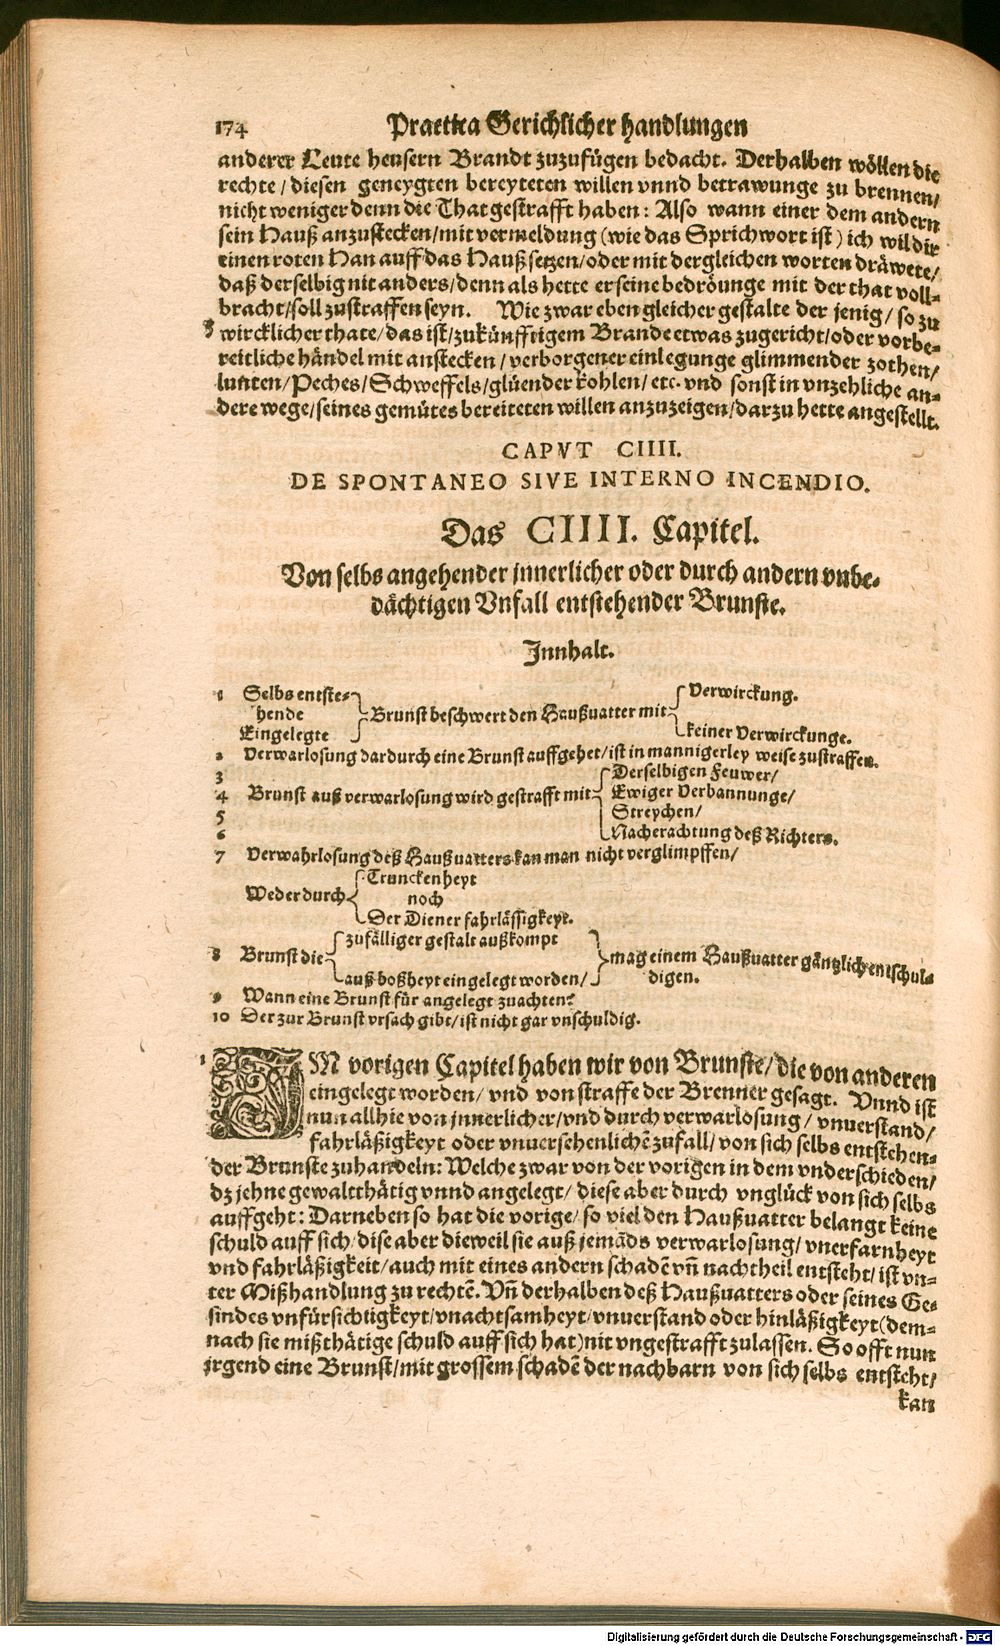 174 Practica Gerichlicher handlungen
anderer Leute heusern Brandt zuzufügen bedacht. Derhalben wöllen die
rechte / diesen geneygten bereyteten willen vnnd betrawunge zu brennen/
nicht weniger denn die That gestrafft haben: Also wann einer dem andern
sein Hauß anzustecken/mit vermeldung (wie das Sprichwort ist) ich wil dir
einen roten Han auff das Hauß setzen/oder mit dergleichen worten dräwete/
daß derselbig nit anders/denn als hette er seine bedröunge mit der that voll-
bracht/soll zustraffen seyn. Wie zwar eben gleicher gestalte der jenig/ so zu
3 wircklicher thate/das ist/zukünfftigem Brande etwas zugericht/oder vorbe-
reitliche händel mit anstecken / verborgener einlegunge glimmender zothen/
lunten/Peches/Schweffels/glüender kohlen/ etc. vnd sonst in vnzehliche an-
dere wege/seines gemütes bereiteten willen anzuzeigen/darzu hette angestellt.
CAPVT CIIII.
DE SPONTANEO SIVE INTERNO INCENDIO.
Das CIIII. Capitel.
Von selbs angehender jnnerlicher oder durch andern vnbe-
dächtigen Vnfall entstehender Brunste.
Jnnhalt.
1 Selbs entste-
hende
Eingelegte
Brunst beschwert den Haußuatter mit
Verwirckung.
keiner Verwirckunge.
2 Verwarlosung dardurch eine Brunst auffgehet/ist in mannigerley weise zustraffen.
3 Derselbigen Feuwer/
4 Brunst auß verwarlosung wird gestrafft mit Ewiger Verbannunge/
5 Streychen/
6 Nacherachtung deß Richters.
7 Verwahrlosung deß Haußuatters kan man nicht verglimpffen/
Weder durch
Trunckenheyt
noch
Der Diener fahrlässigkeyt.
8 Brunst die
zufälliger gestalt außkompt
auß boßheyt eingelegt worden/
mag einem Haußuatter gäntzlich entschul-
digen.
9 Wann eine Brunst für angelegt zuachten?
10 Der zur Brunst vrsach gibt/ist nicht gar vnschuldig.
1 JM vorigen Capitel haben wir von Brunste/die von anderen
eingelegt worden/ vnd von straffe der Brenner gesagt. Vnnd ist
nun allhie von jnnerlicher/vnd durch verwarlosung / vnuerstand/
fahrläßigkeyt oder vnuersehenlichē zufall/ von sich selbs entstehen-
der Brunste zuhandeln: Welche zwar von der vorigen in dem vnderschieden/
dz jehne gewaltthätig vnnd angelegt/ diese aber durch vnglück von sich selbs
auffgeht: Darneben so hat die vorige/ so viel den Haußuatter belangt keine
schuld auff sich/dise aber dieweil sie auß jemāds verwarlosung/ vnerfarnheyt
vnd fahrläßigkeit/auch mit eines andern schadē vñ nachtheil entsteht/ist vn-
ter Mißhandlung zu rechtē. Vñ derhalben deß Haußuatters oder seines Ge-
sindes vnfürsichtigkeyt/vnachtsamheyt/vnuerstand oder hinläßigkeyt(dem-
nach sie mißthätige schuld auff sich hat)nit vngestrafft zulassen. So offt nun
jrgend eine Brunst/mit grossem schadē der nachbarn von sich selbs entsteht/
kan
Digitalisierung gefördert durch die Deutsche Forschungsgemeinschaft - DFG